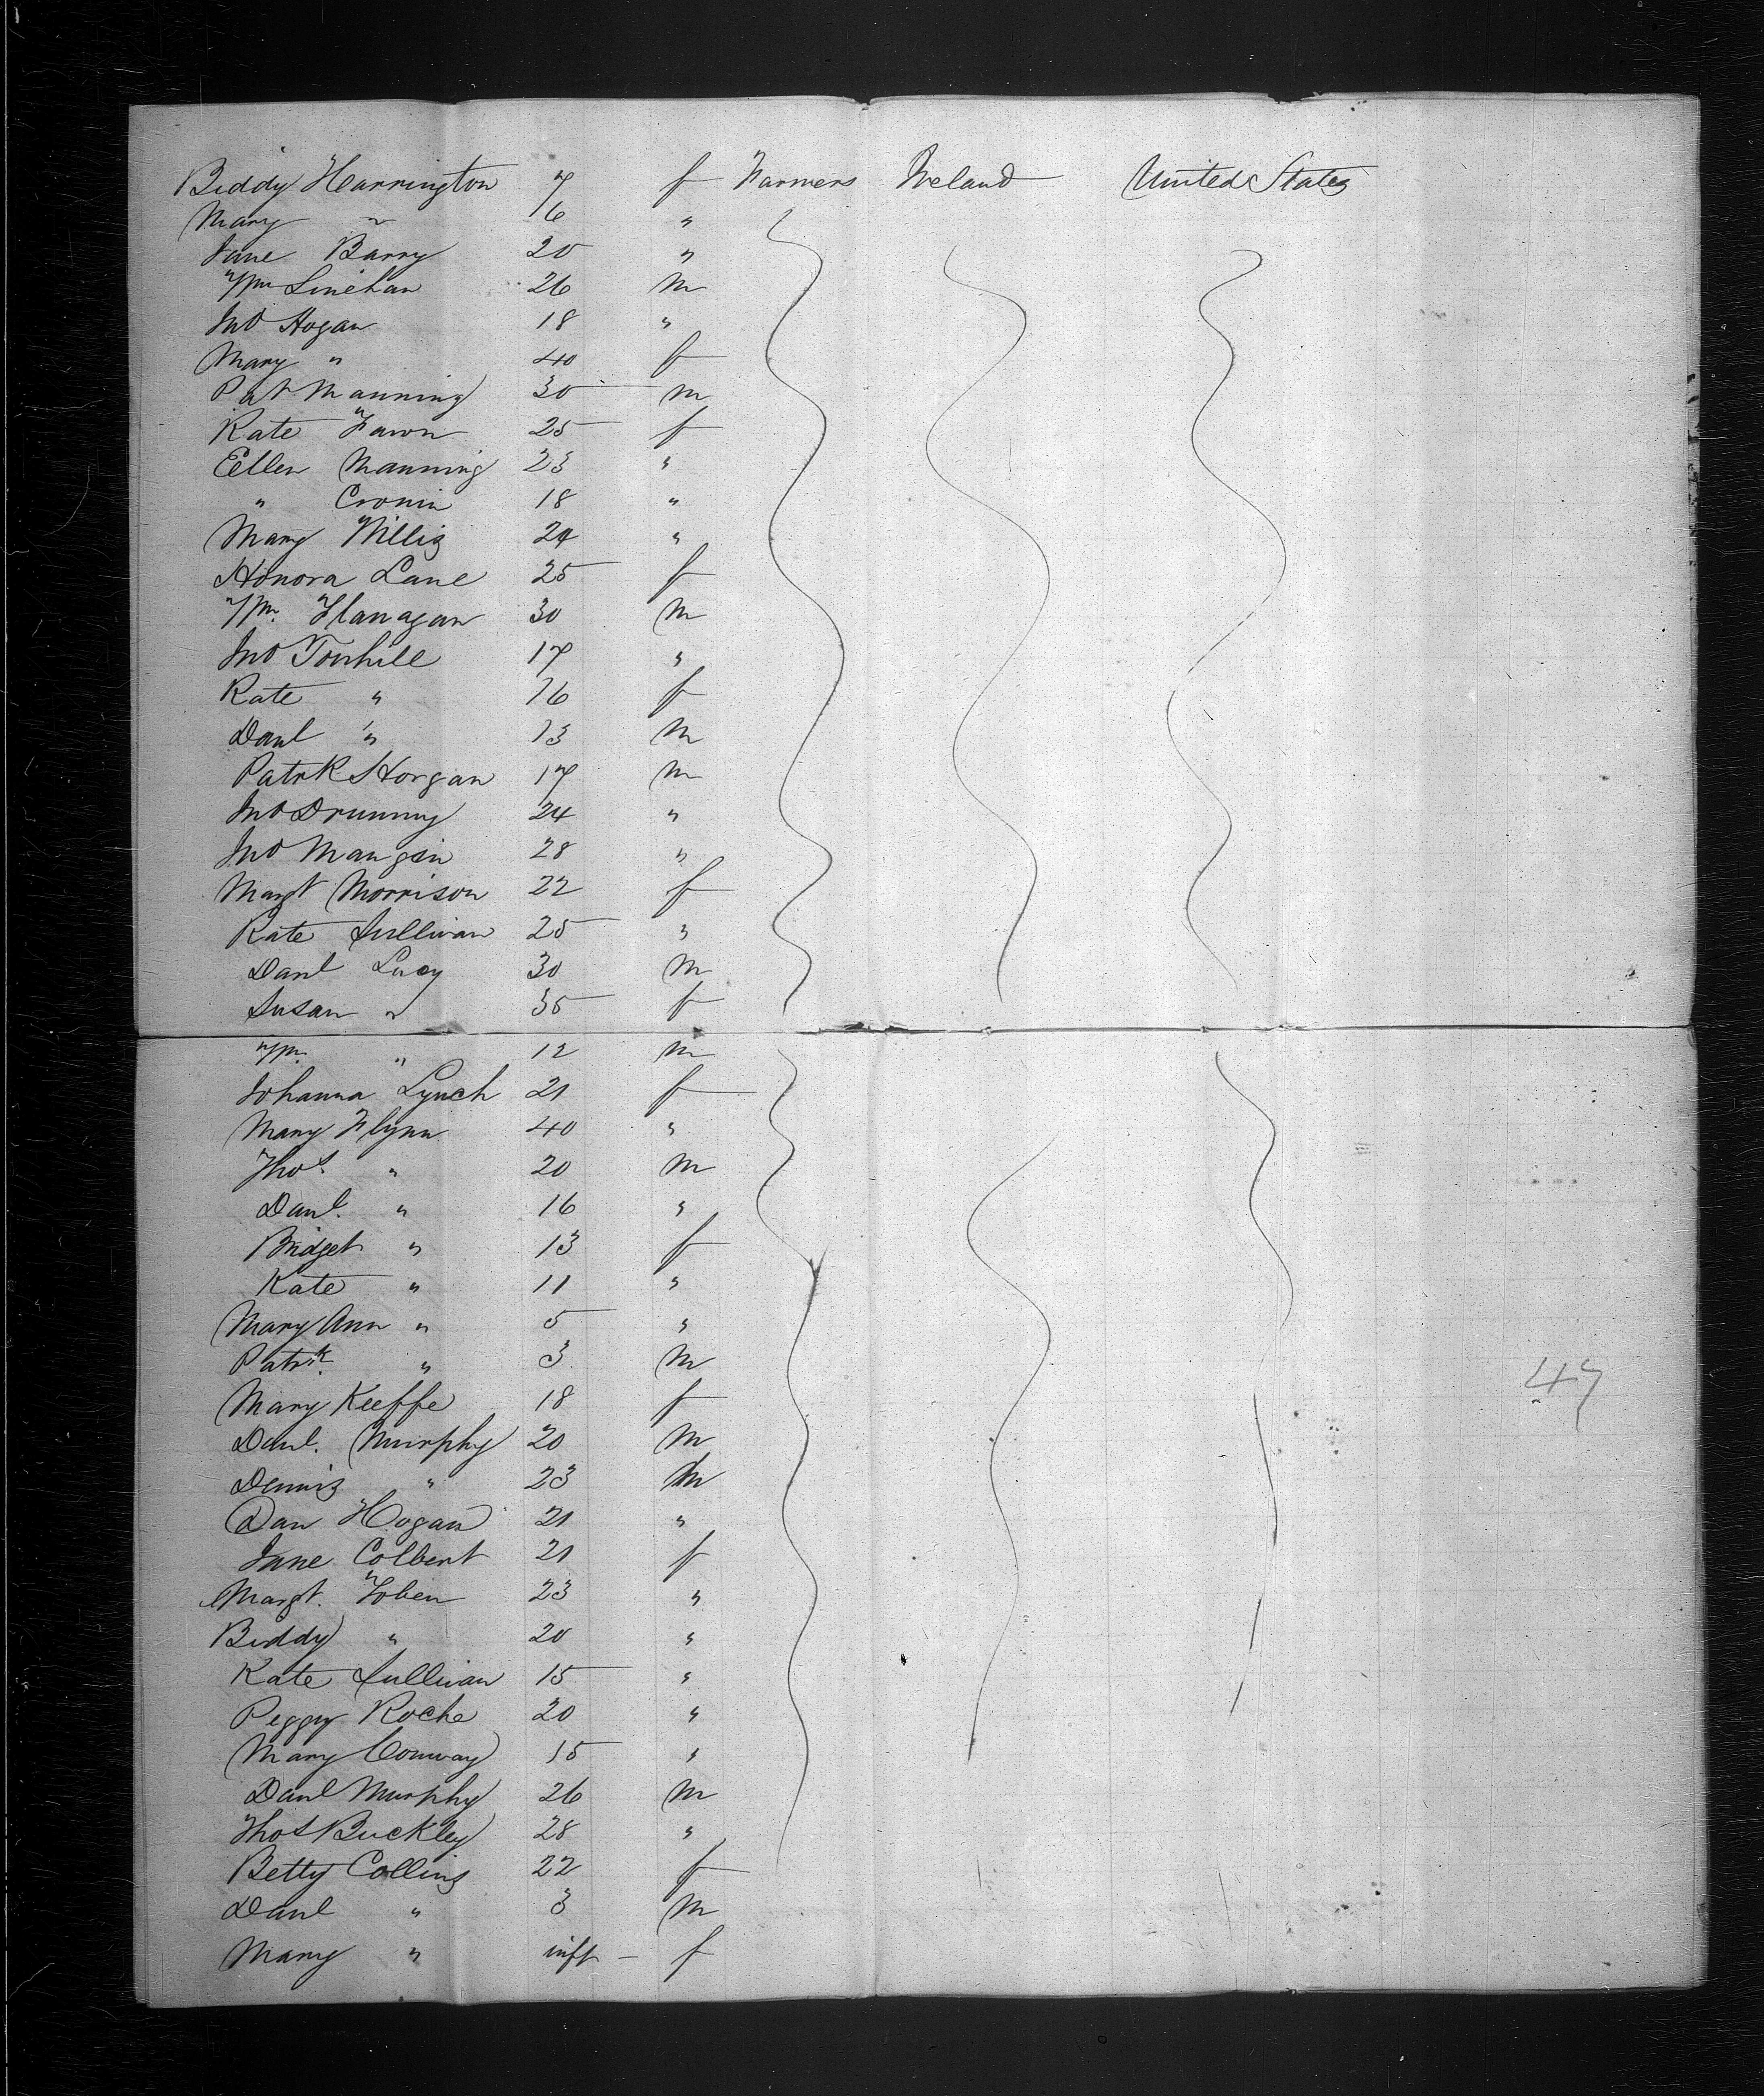 Biddy Harrington 7 f Farmers Ireland United States
Mary " 6 "
Jane Barry 20 "
Wm Linehan 26 m
Jno Hogan 18 "
Mary " 40 f
Pat Manning 30 m
Kate Fawn 25 f
Ellen Manning 23 "
" Cronin 18 "
Mary Willis 24 "
Honora Lane 25 f
Wm. Flanagan 30 m
Jno Touhill 17 "
Kate " 16 f
Danl " 13 m
Patrk Horgan 17 m
Jno Drummy 24 "
Jno Mangin 28 "
Margt Morrison 22 f
Kate Sullivan 25 "
Danl Lucy 30 m
Susan " 35 f
Wm. " 12 m
Johanna Lynch 21 f
Mary Flynn 40 "
Thos. " 20 m
Danl. " 16 "
Bridget " 13 f
Kate " 11 "
Mary Ann " 5 "
Patrk. " 3 m
Mary Keeffe 18 f
Danl. Murphy 20 m
Dennis " 23 m
Dan Hogan 21 "
Jane Colbert 21 f
Margt. Toben 23 "
Biddy " 20 "
Kate Sullivan 15 "
Peggy Roche 20 "
Mary Conway 15 "
Danl Murphy 26 m
Thos Buckley 28 "
Betty Collins 22 f
Danl " 3 m
Mary " inft - f
47